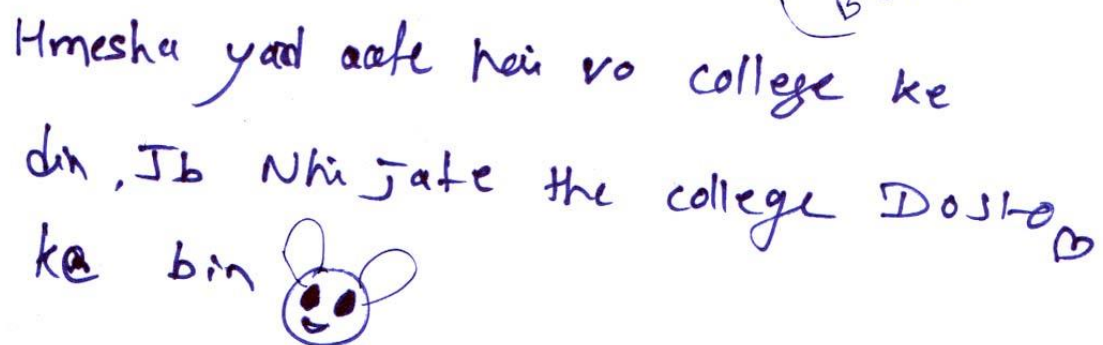 Hmesha yad aate hai vo college ke
din, Jb Nhi jate the college Dosto
ke bin